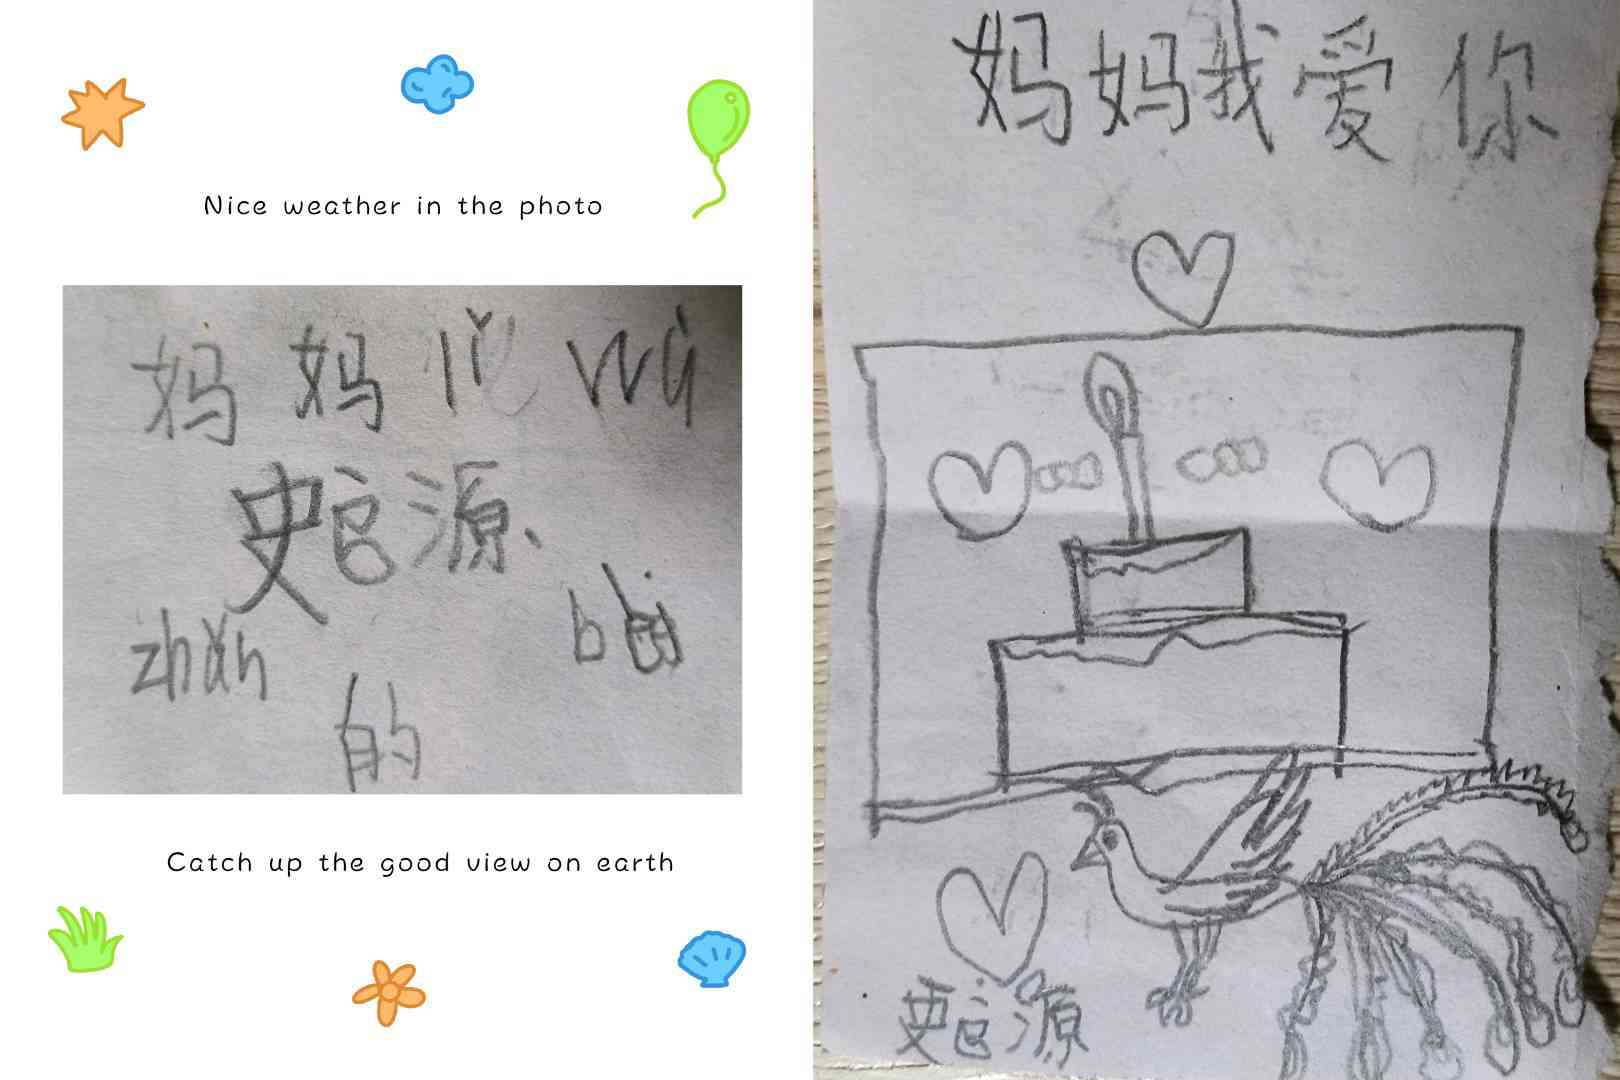 Nice weather in the photo
妈妈 lǐ wù
史官源、
的
Catch up the good view on earth
妈妈我爱你
史官源